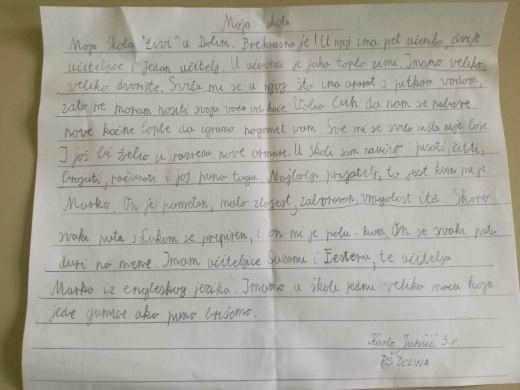 Moja škola
Moja škola "živi" u Dolini. Prekrasna je! U njoj ima pet učenika, dvije
učiteljice i jedan učitelj. U učionici je jako toplo zimi. Imamo veliko,
veliko dvorište. Sviđa mi se u njoj što ima aparat s pitkom vodom,
zato ne moram nositi svoju vodu od kuće. Volio bih da nam se nabave
nove kožne lopte da igramo nogomet vani. Sve mi se sviđa ništa nije loše.
I još bi želio u razredu nove ormare. U školi sam naučio: pisati, čitati,
brojati, računati i još puno toga. Najbolji prijatelj, to jest kum mi je
Marko. On je pametan, malo zločest, zaboravan, vragolast itd. Skoro
svaki puta s Lukom se prepirem, i on mi je polu-kum. On se svaki puta
duri na mene. Imam učiteljice Suzanu i Esteru, te učitelja
Marka iz engleskog jezika. Imamo u školi jednu veliku macu koja
jede gumice ako puno brišemo.
Karlo 3.r.
PŠ DOLINA